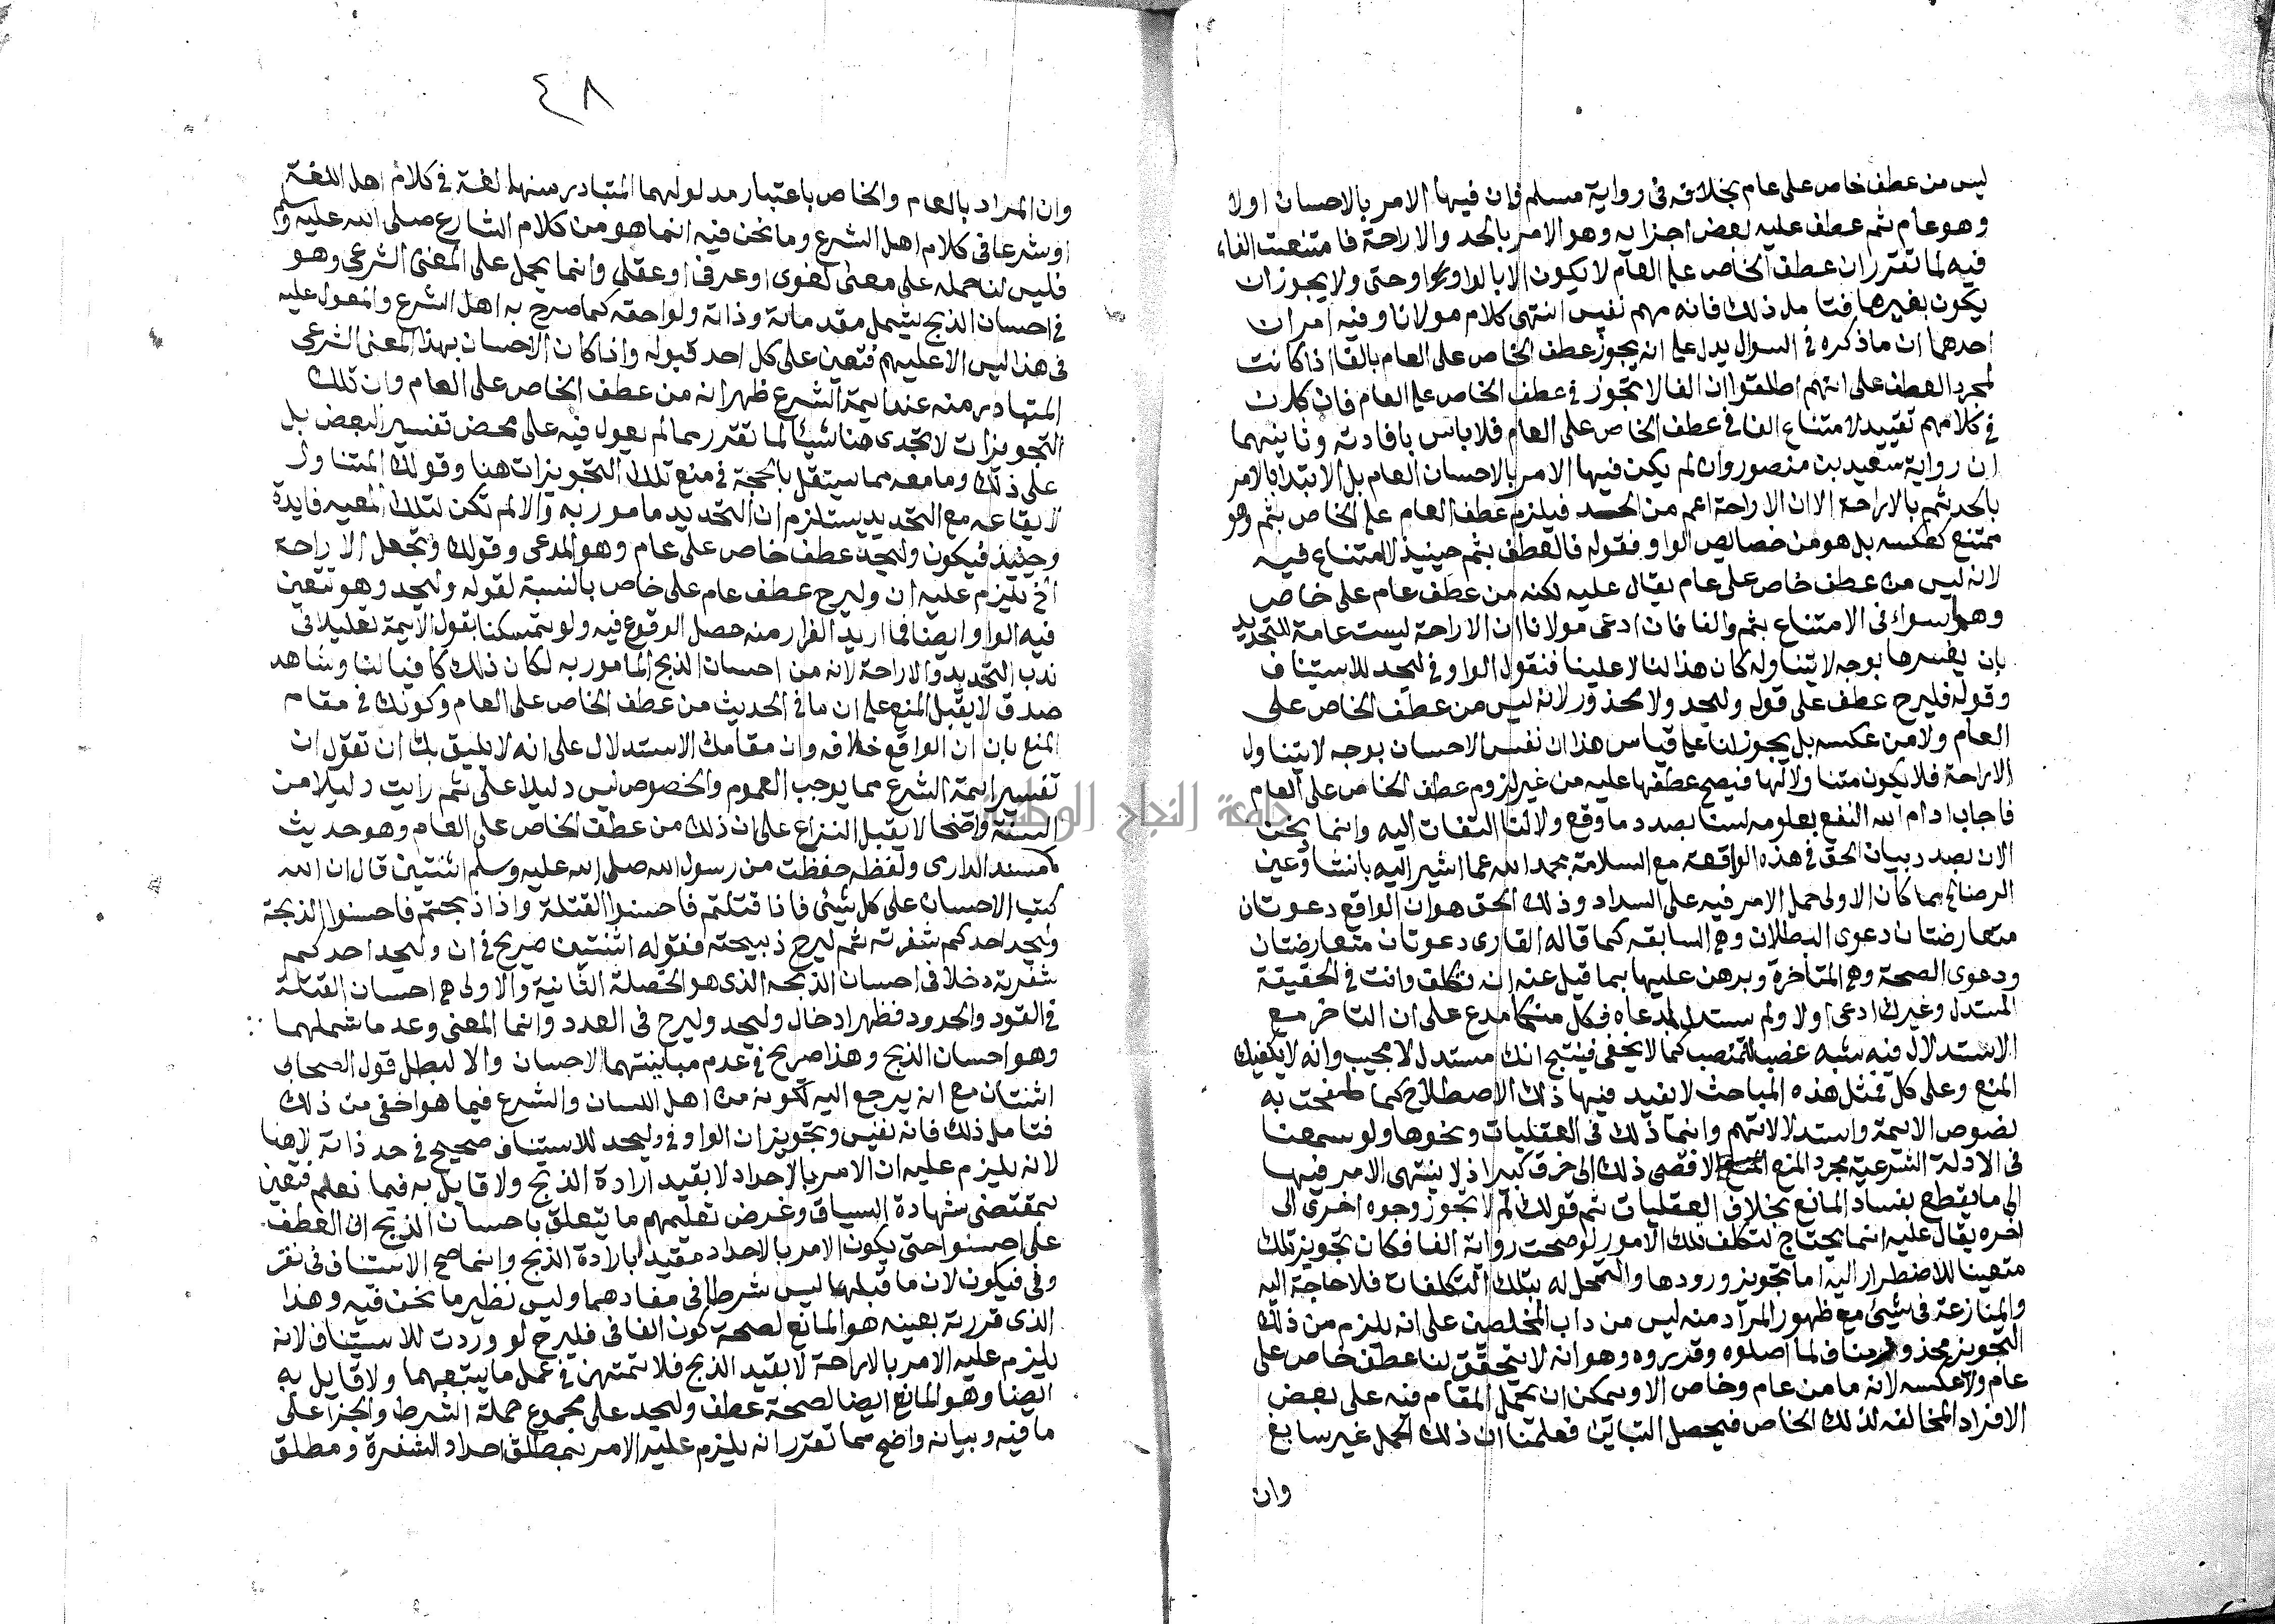 ليس من عطف خاص على عام بخلافه فى رواية مسلم فان فيها الامر بالاحسان اولا
وهو عام ثم عطف عليه بعض اجزايه وهو الامر بالحد والاراحة فامتنعت الفاء
فيه لما تقرر ان عطف الخاص على العام لا يكون الا بالواو او حتى ولا يجوز ان
يكون بغيرها فتامل ذلك فانه مهم نفيس انتهى كلام مولانا وفيه امران
احدهما ان ما ذكره فى السوال يدل على انه يجوز عطف الخاص على العام بالفا اذا كانت
لمجرد العطف على انهم اطلقوا ان الفا لا تجوز فى عطف الخاص على العام فان كان
فى كلامهم تقييد لامتناع الفا فى عطف الخاص على العام فلا باس بافادته وثانيهما
ان رواية سعيد بن منصور وان لم يكن فيها الامر بالاحسان العام بل الابتدا بالامر
بالحد ثم بالاراحة الا ان الاراحة اعم من الحد فيلزم عطف العام على الخاص بثم وهو
ممتنع كعكسه بل هو من خصائص الواو فقوله فالعطف بثم حينيذ لا امتناع فيه
لانه ليس من عطف خاص على عام يقال عليه لكنه من عطف عام على خاص
وهما سواء فى الامتناع بثم والفا فان ادعى مولانا ان الاراحة ليست عامة للتحديد
بان يفسرها بوجه لا يتناوله كان هذا لنا لا علينا فنقول الواو فى ليحد للاستيناف
وقوله فليرح عطف على قوله وليحد ولا محذور لانه ليس من عطف الخاص على
العام ولا من عكسه بل يجوز لنا على قياس هذا ان نفسر الاحسان بوجه لا يتناول
الاراحة فلا يكون متناولا لها فيصح عطفها عليه من غير لزوم عطف الخاص على العام
فاجاب ادام الله النفع بعلومه لسنا بصدد ما وقع ولا لنا التفات اليه وانما نحن
الان بصدد بيان الحق فى هذه الواقعة مع السلامة بحمد الله عما اشير اليه باننا وعين
الرضا مما كان الاولى حمل الامر فيه على السداد وذلك الحق هو ان الواقع دعوتان
متعارضتان دعوى البطلان وهى السابقه كما قاله القارى دعوتان متعارضتان
ودعوى الصحة وهى المتاخرة وبرهن عليها بما قيل عنه انه تكلف وانت فى الحقيقة
المستدل وغيرك ادعى اولا ولم يستدل لمدعاه فكل منكما مدع على ان التاخر مع
الاستدلال فيه شبه غصب للمنصب كما لا يخفى فينتج انك مستدل لا مجيب وانه لا يكفيك
المنع وعلى كل فمثل هذه المباحث لا يفيد فيها ذلك الاصطلاح كما طفحت به
نصوص الايمة واستدلالاتهم وانما ذلك فى العقليات ونحوها ولو سمعنا
فى الادلة الشرعية مجرد المنع لافضى ذلك الى خرق كبير اذ لا ينتهى الامر فيها
الى ما يقطع بفساد المانع بخلاف العقليات ثم قولك لم لا تجوز وجوه اخرى الى
اخره يقال عليه انما يحتاج لتكلف تلك الامور لو صحت رواية الفا فكان تجويز تلك
متعينا للاضطرار اليه اما تجويز ورودها والتمحل له بتلك التكلفات فلا حاجة اليه
والمنازعة فى شيئ مع ظهور المراد منه ليس من داب المخلصين على انه يلزم من ذلك
التجويز محذور مناف لما اصلوه وقدروه وهو انه لا يتحقق لنا عطف خاص على
عام ولا عكسه لانه ما من عام وخاص الا ويمكن ان يحمل المقام فيه على بعض
الافراد المخالفه لذلك الخاص فيحصل التباين فعلمنا ان ذلك الحمل غير سايغ
وان
٤٨
وان المراد بالعام والخاص باعتبار مدلولهما المتبادر منها لغة فى كلام اهل اللغة
او شرعا فى كلام اهل الشرع وما نحن فيه انما هو من كلام الشارع صلى الله عليه وسلم
فليس لنا حمله على معنى لغوى او عرفى او عقلى وانما يحمل على المعنى الشرعى وهو
فى احسان الذبح يشمل مقدماته وذاته ولواحقه كما صرح به اهل الشرع والمعول عليه
فى هذا ليس الا عليهم فتعين على كل احد قبوله واذا كان الاحسان بهذا المعنى الشرعى
المتبادر منه عند ايمة الشرع ظهر انه من عطف الخاص على العام وان تلك
التجويزات لا تجدى هنا شيئا لما تقرر مما لم يعول فيه على محض تفسير البعض بل
على ذلك وما معه مما يستقل بالحجة فى منع تلك التجويزات هنا وقولك المتناول
لايقاعه مع التحديد يستلزم ان التحديد مامور به والا لم تكن لتلك المعيه فايدة
وحينيذ فيكون وليحد عطف خاص على عام وهو المدعى وقولك وتجعل الاراحة
الخ يلزم عليه ان وليرح عطف عام على خاص بالنسبة لقوله وليحد وهو تتعين
فيه الواو ايضا فما اريد الفرار منه حصل الوقوع فيه ولو تمسكنا بقول الايمة تعليلا فى
ندب التحديد والاراحة لانه من احسان الذبح المامور به لكان ذلك كافيا لنا وشاهد
صدق لا يقبل المنع على ان ما فى الحديث من عطف الخاص على العام وكونك فى مقام
المنع بان ان الواقع خلافه وان مقامك الاستدلال على انه لا يليق بك ان تقول ان
تفسير ايمة الشرع مما يوجب العموم والخصوص ليس دليلا على ثم رايت دليلا من
السنة واضحا لا يقبل النزاع على ان ذلك من عطف الخاص على العام وهو حديث
مسند الدارى ولفظه حفظت من رسول الله صلى الله عليه وسلم اثنتين قال ان الله
كتب الاحسان على كل شيئ فاذا قتلتم فاحسنوا القتلة واذا ذبحتم فاحسنوا الذبحة
وليحد احدكم شفرته ثم ليرح ذبيحته فقوله اثنتين صريح فى ان وليحد احدكم
شفرته دخلا فى احسان الذبحه الذى هو الخصلة الثانية والاولى هى احسان القتلة
فى القود والحدود فظهر ادخال وليحد وليرح فى العدد وانما المعنى وعد ما شملهما
وهو احسان الذبح وهذا صريح فى عدم مباينتهما الاحسان والا لبطل قول الصحابى
اثنتان مع انه يرجع اليه لكونه من اهل اللسان والشرع فيما هو اخفى من ذلك
فتامل ذلك فانه نفيس وتجويز ان الواو فى وليحد للاستيناف صحيح فى حد ذاته لا هنا
لانه يلزم عليه ان الامر بالاحداد لا بقيد ارادة الذبح ولا قايل به فيما نعلم فتعين
بمقتضى شهادة السياق وغرض تعليمهم ما يتعلق باحسان الذبح ان العطف
على احسنوا حتى يكون الامر بالاحداد مقيد ابارادة الذبح وانما صح الاستيناف فى نقر
وفى فيكون لان ما قبلهما ليس شرطا فى مفادهما وليس نظير ما نحن فيه وهذا
الذى قررته بعينه هو المانع لصحة كون الفا فى فليرح لو وردت للاستيناف لانه
يلزم عليه الامر بالاراحة لا بقيد الذبح فلا تمتهن فى عمل ما يتبعهما ولا قايل به
ايضا وهو المانع ايضا لصحة عطف وليحد على مجموع جملة الشرط والجزا على
ما فيه وبيانه واضح مما تقرر انه يلزم عليه الامر بمطلق احداد الشفرة ومطلق
جامعة النجاح الوطنية